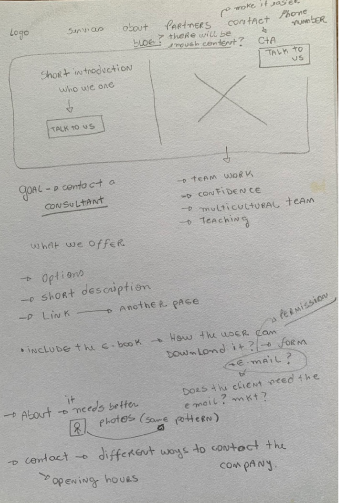 to make it easier
Logo Services about PARTNERS contact Phone number
BLOG? there will be enough content? CTA
TALK TO US
Short introduction
who we are
TALK TO US
GOAL → contact a
CONSULTANT
→ TEAM WORK
→ CONFIDENCE
→ MULTICULTURAL TEAM
→ TEACHING
What we OFFER
→ Options
→ Short description
→ Link → ANOTHER PAGE
→ PERMISSION
• INCLUDE the E-book → How the user can
Download it? → form
→ E-mail?
Does the client need the
email? mkt?
→ About → it needs better
photos (same pattern)
→ contact → different ways to contact the
company.
opening hours